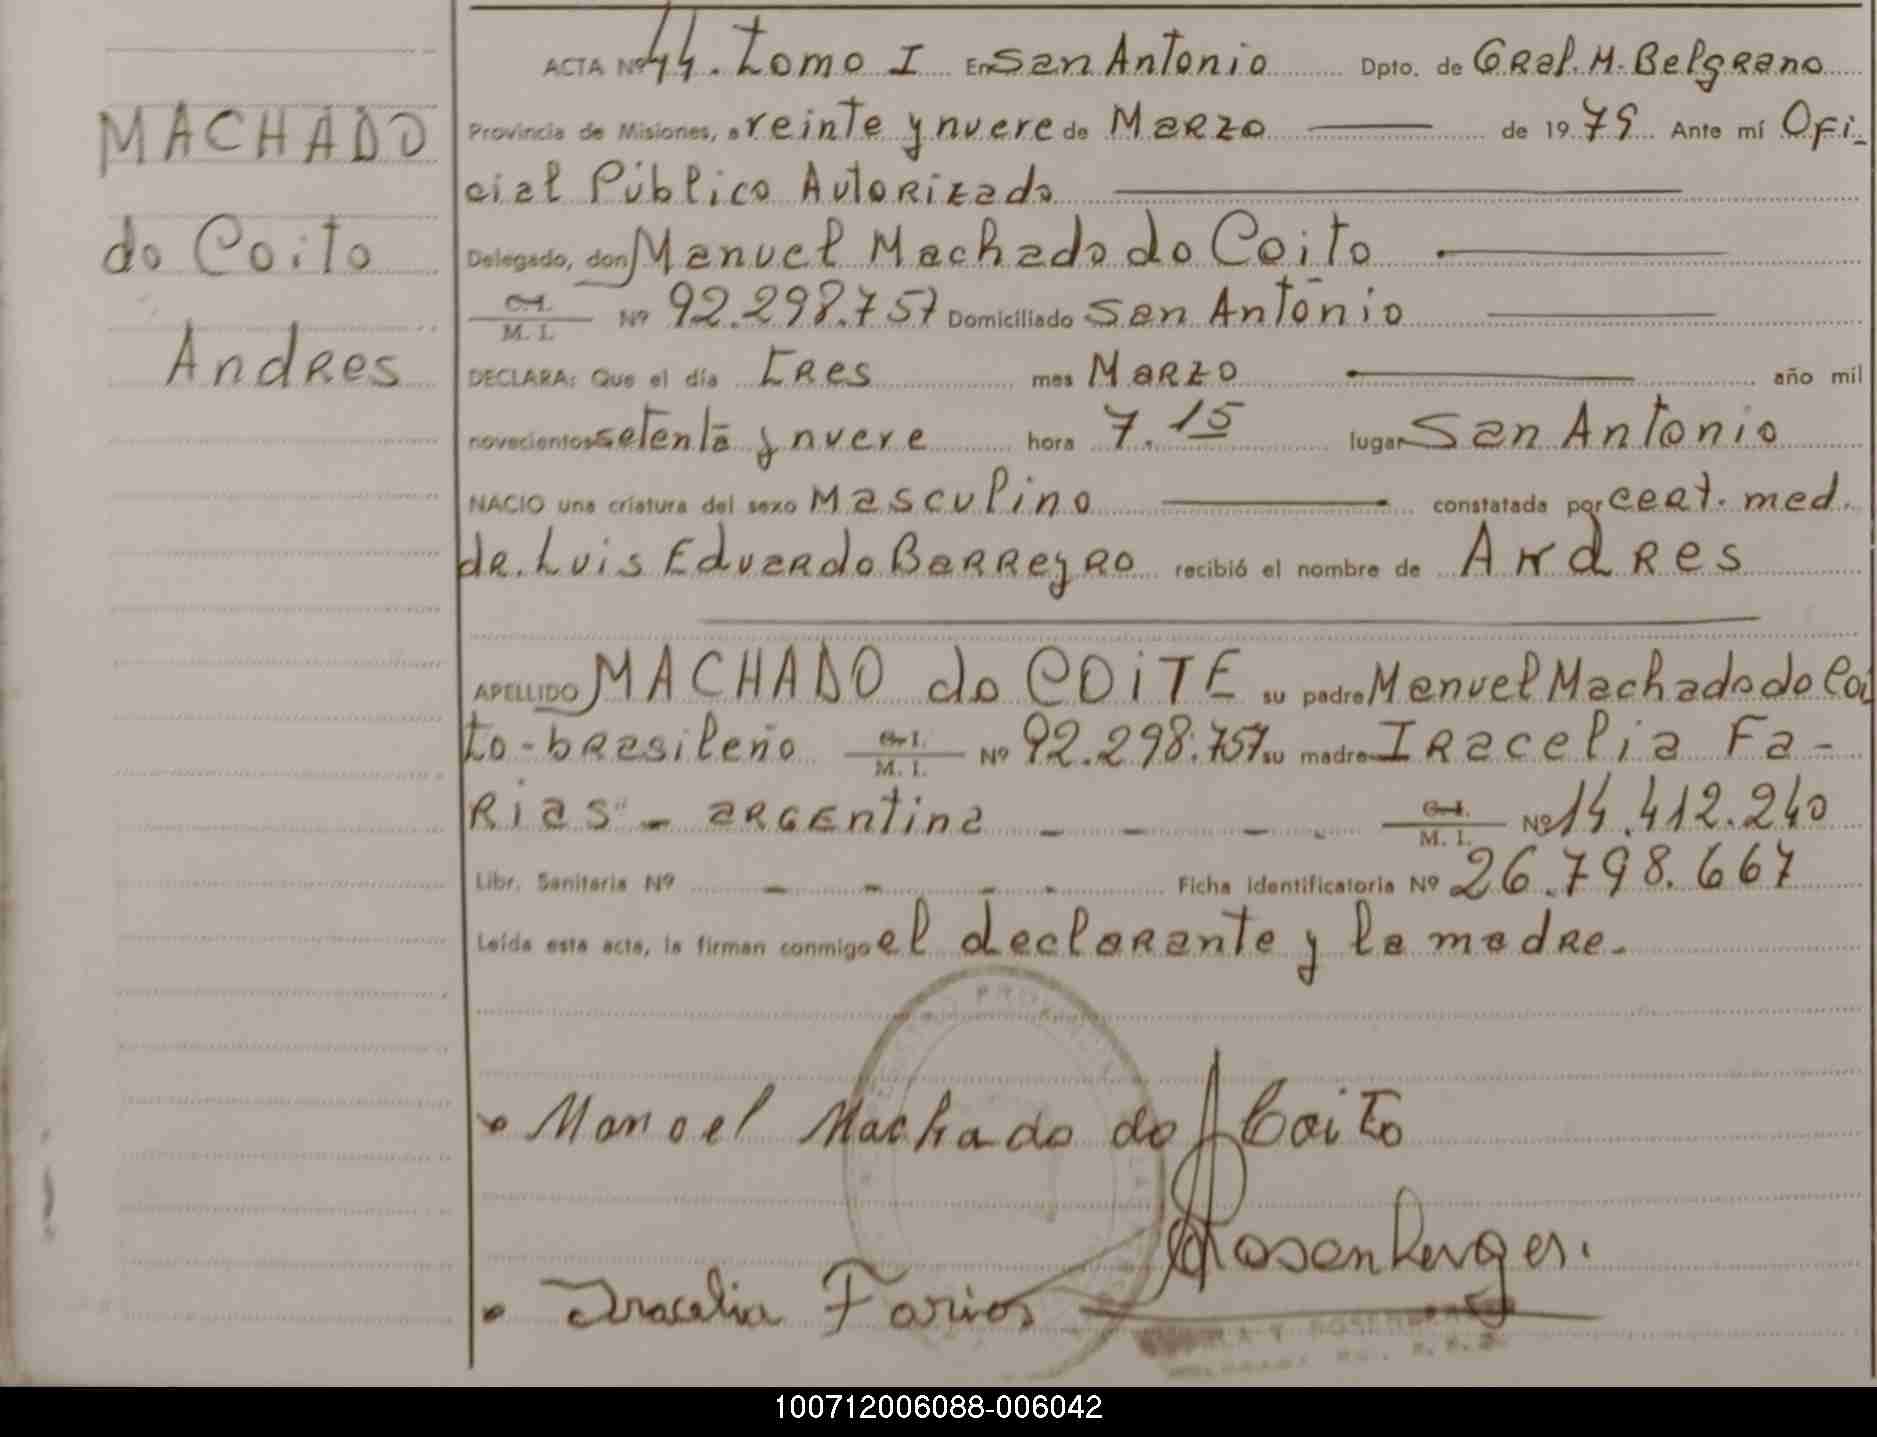 ACTA Nº 44. Tomo I En San Antonio Dpto. de GRal. M. BelgRano
MACHADO
Provincia de Misiones, a veinte y nueve de MaRzo de 1979 Ante mí Ofi-
cial Público AutoRizado
do Coito
Delegado, don Manuel Machado do Coito
C.I. M. I. Nº 92.298.757 Domiciliado San Antonio
Andres
DECLARA: Que el día tRes mes MaRzo año mil
novecientos setenta y nueve hora 7.15 lugar San Antonio
NACIO una criatura del sexo Masculino constatada por ceRt. med.
dR. Luis EduaRdo BaRReyRo recibió el nombre de AndRes
APELLIDO MACHADO do COiTE su padre Manuel Machado do Coi
to-bRasileño C.I. M. I. Nº 92.298.757 su madre IRacelia Fa-
Rias - aRGEntina - - - - C.I. M. I. Nº 14.412.240
Libr. Sanitaria Nº - - - - Ficha Identificatoria Nº 26.798.667
Leída esta acta, la firman conmigo el declaRante y la madRe.
Manoel Machado do Coito
Rosenberger.
Iracelia Farias
100712006088-006042